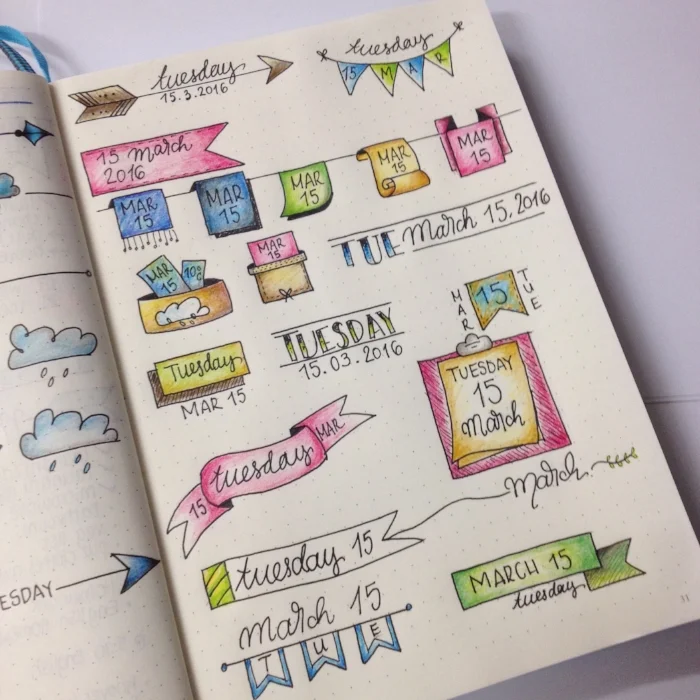 tuesday
15.3.2016
tuesday
15 MAR
15 march
2016
MAR
15
MAR
15
MAR
15
MAR
15
MAR
15
TUE March 15, 2016
MAR
15
10°C
MAR
15
MAR 15 TUE
TUESDAY
15.03.2016
Tuesday
MAR 15
TUESDAY
15
march
15 tuesday MAR
march
tuesday 15
MARCH 15
tuesday
march 15
TUE
ESDAY
11